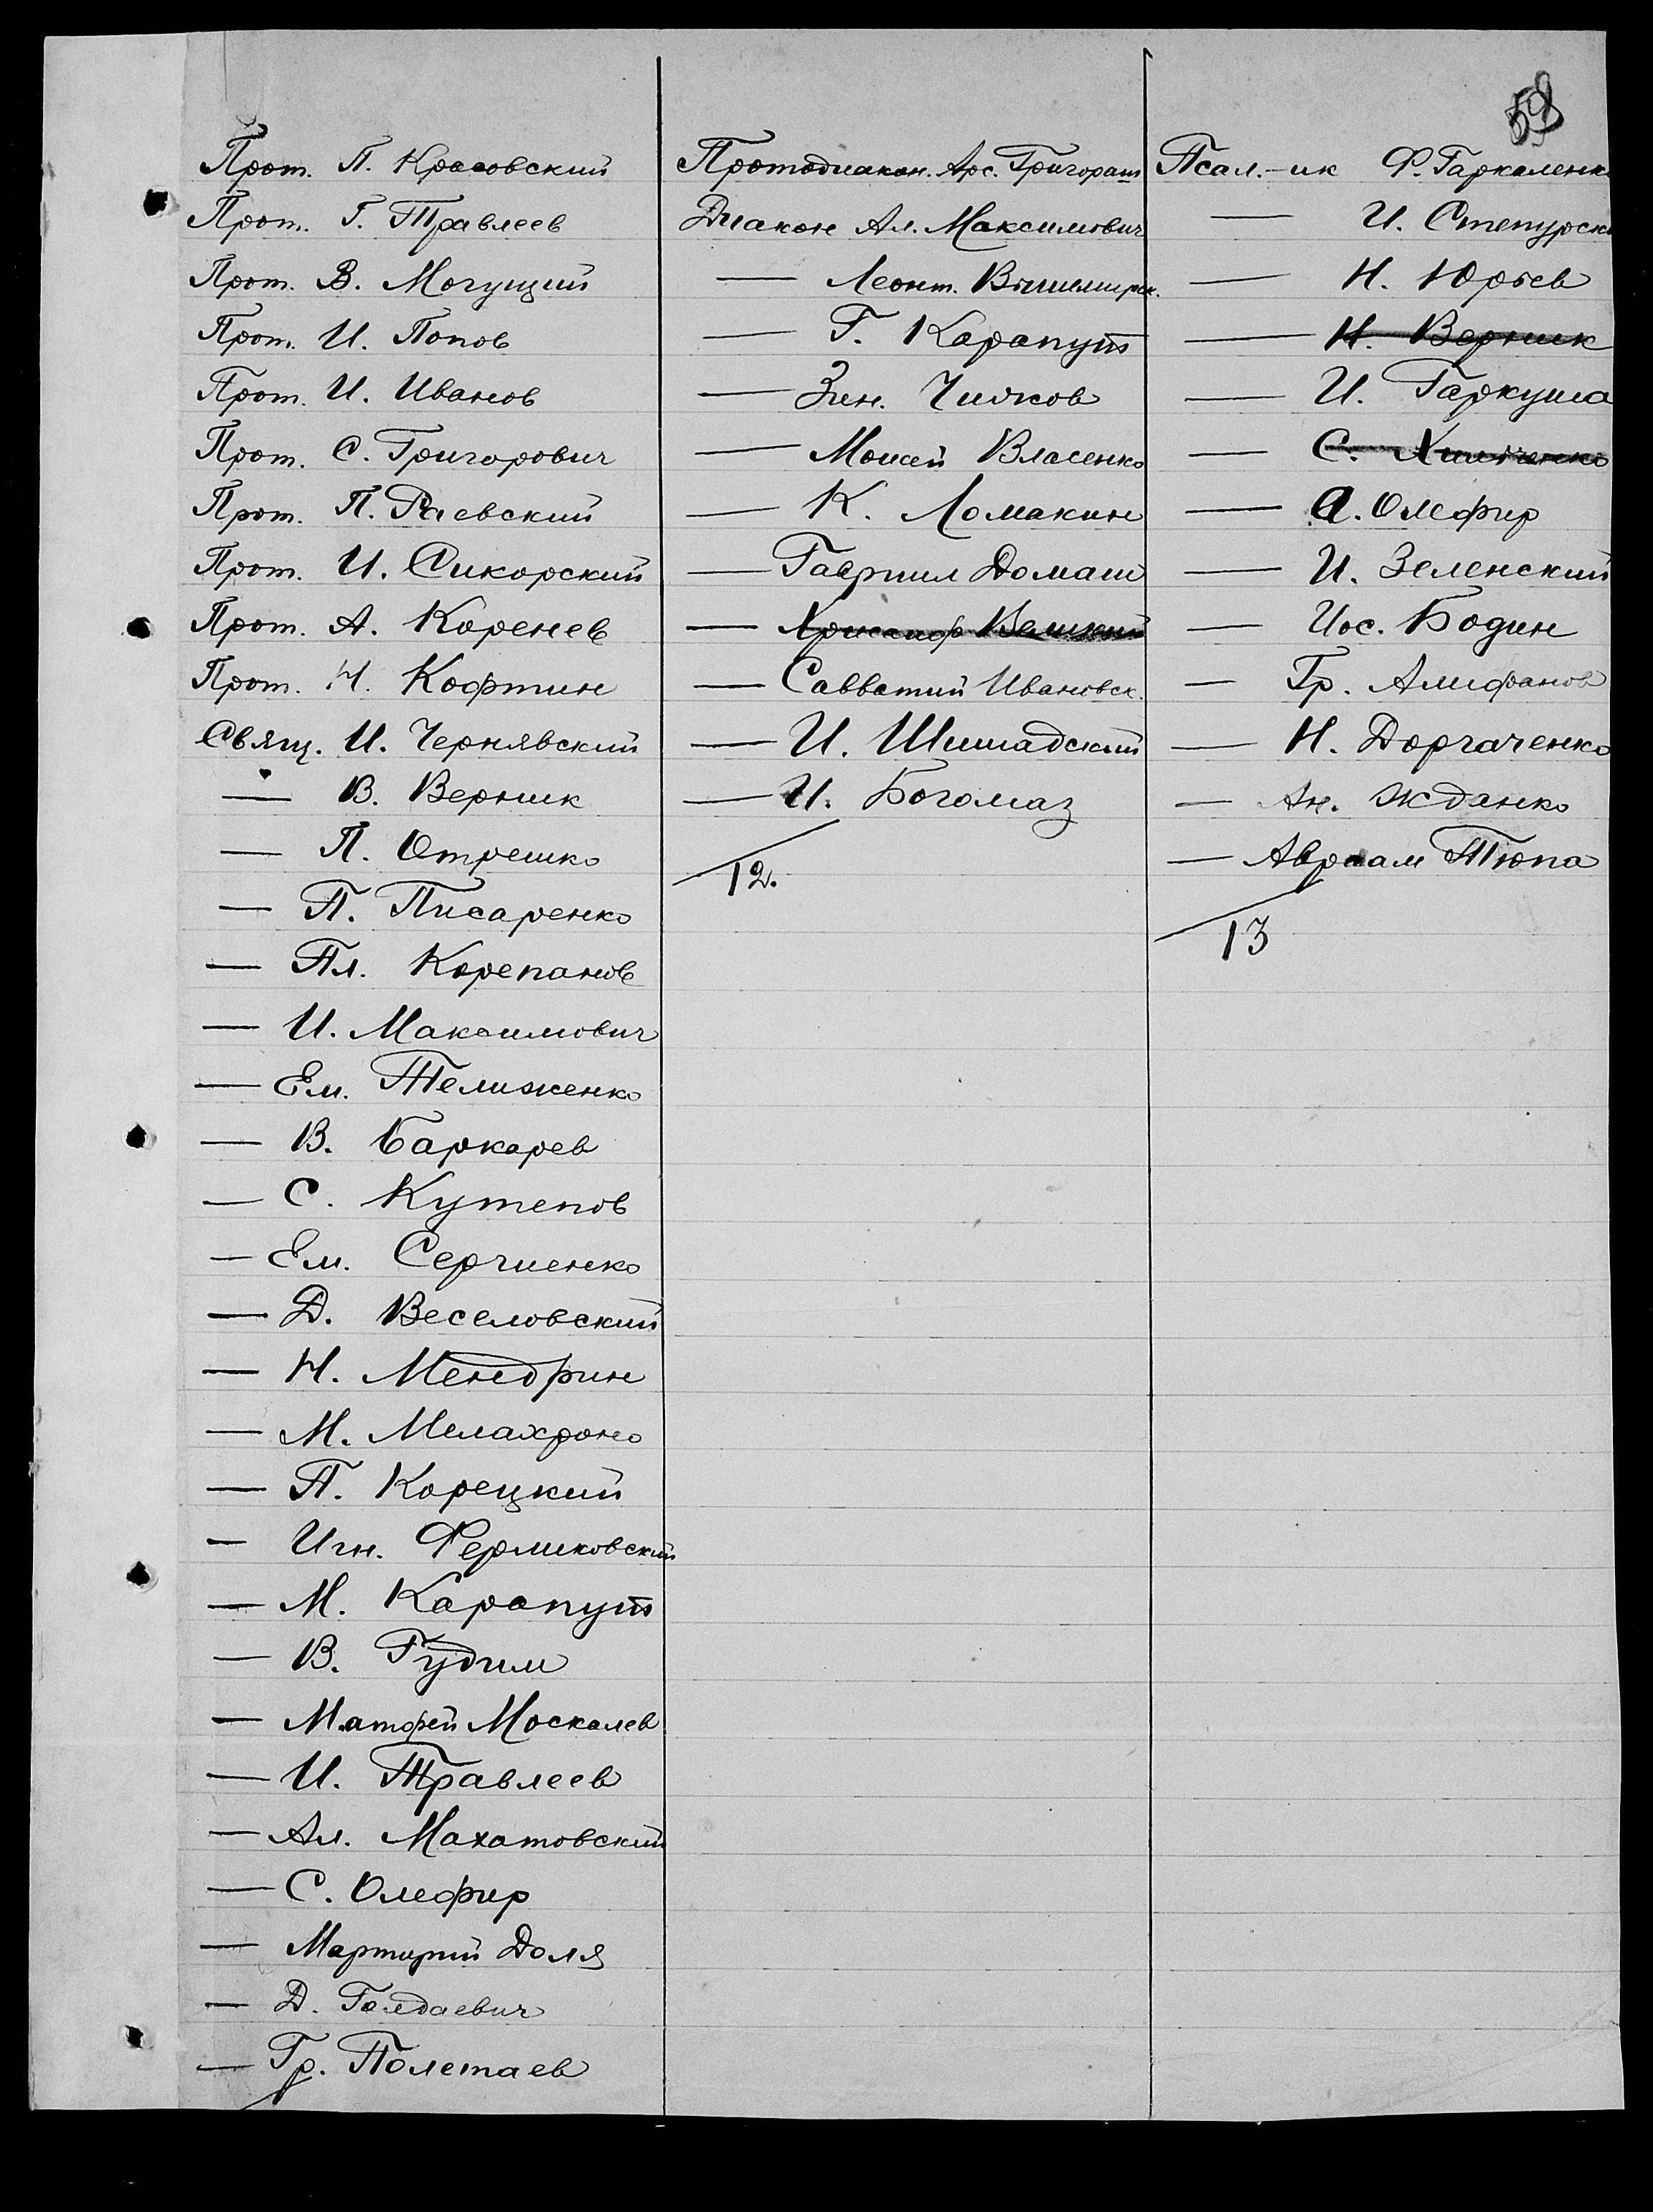 59
Прот. П. Красовский
Прот. Г. Травлеев
Прот. В. Могущий
Прот. И. Попов
Прот. И. Иванов
Прот. С. Григорович
Прот. П. Раевский
Прот. И. Сикорский
Прот. А. Коренев
Прот. Н. Кофтин
Свящ. И. Чернявский
— В. Верник
— П. Отрешко
— П. Писаренко
— Пл. Корепанов
— И. Максимович
— Ем. Телиженко
— В. Баркарев
— С. Кутепов
— Ем. Сергиенко
— Д. Веселовский
— Н. Мендрин
— М. Мелахроно
— П. Корецкий
— Игн. Ферликовский
— М. Карапут
— В. Гудим
— Матфей Москалев
— И. Травлеев
— Ал. Махатовский
— С. Олефир
— Мартирий Доля
— Д. Голдаевич
— Гр. Полетаев
Протодиакон. Арс. Григораш
Диакон Ал. Максимович
— Леонт. Вышемирск.
— Г. Карапут
— Зин. Чижов
— Моисей Власенко
— К. Ломакин
— Гавриил Домаш
— Хрисанф Великий
— Савватий Ивановск.
— И. Шишадский
— И. Богомаз
12.
Псал.-ик Ф. Гаркаленк
— И. Степурск
— Н. Юрьев
— Н. Верник
— И. Гаркуша
— С. Хильченко
— А. Олефир
— И. Зеленский
— Иос. Бодин
— Гр. Алифанов
— Н. Доргаченко
— Ан. Жданко
— Авраам Тюпа
13